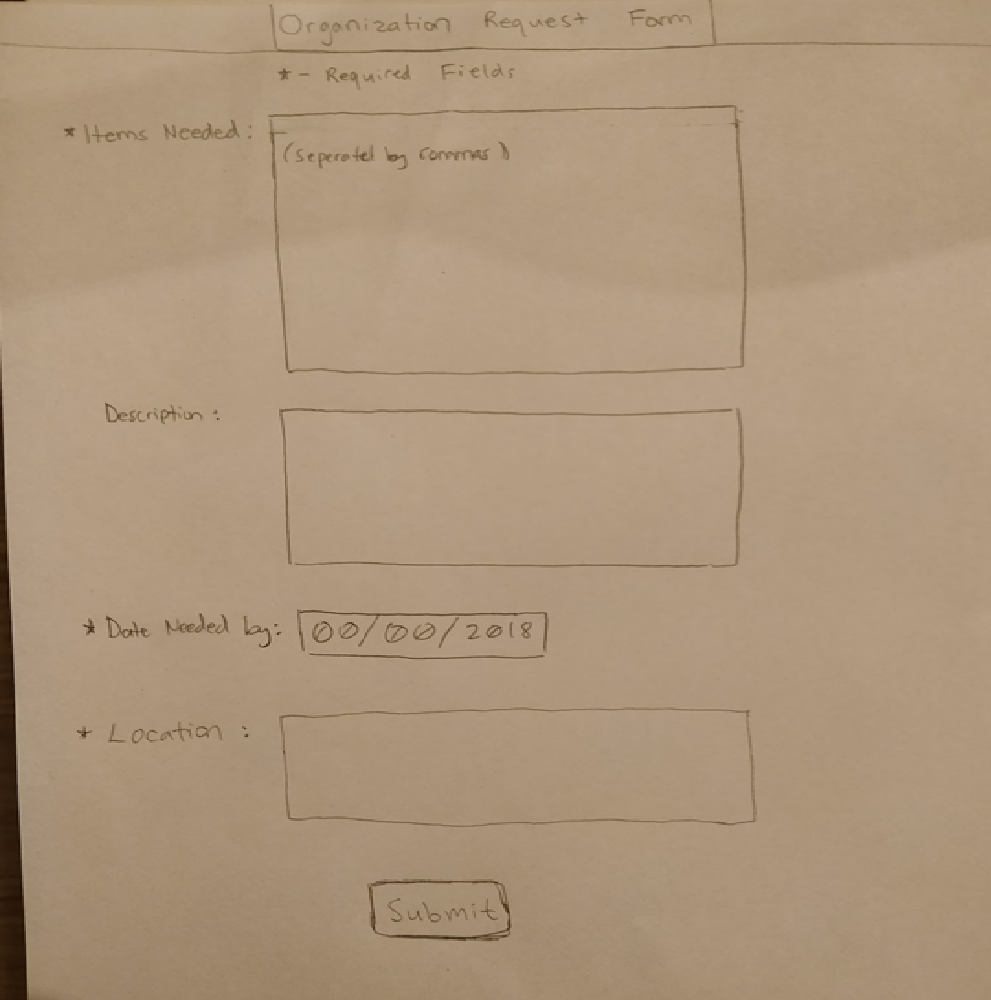 Organization Request Form
* - Required Fields
* Items Needed:
(Seperated by Commas)
Description:
* Date Needed by: 00/00/2018
* Location:
Submit